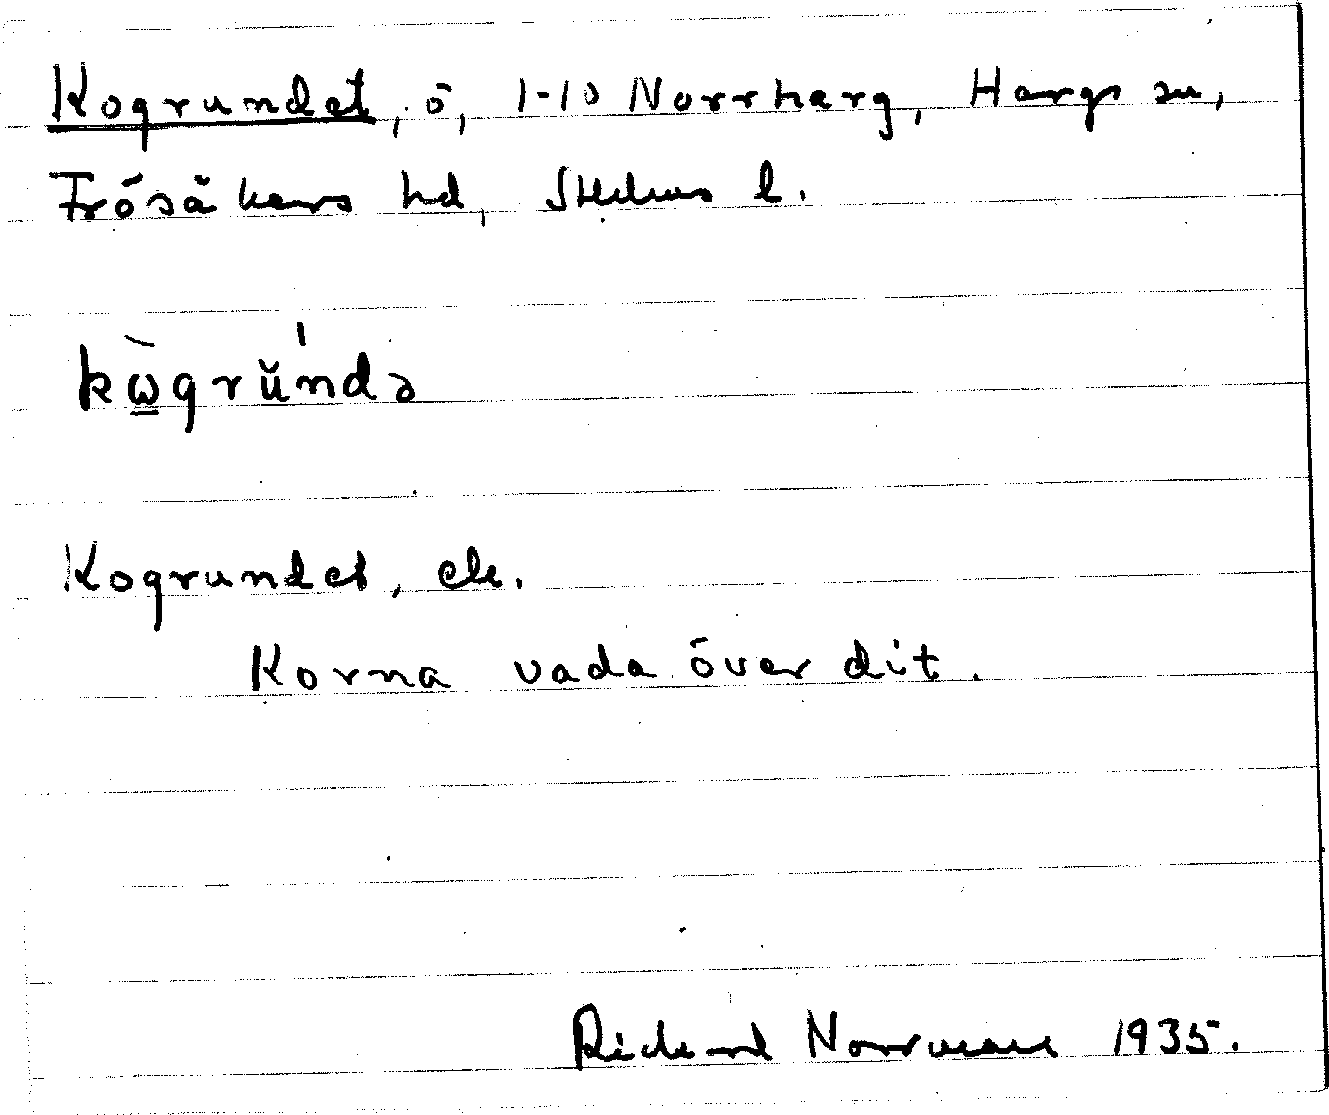 Kogrundet, ö, 1-10 Norrharg, Hargs sn,
Frösåkers hd, Sthlms l.
kὼ̱grŭ́ndə
Kogrundet, ele.
Korna vada över dit.
Richard Norrman 1935.